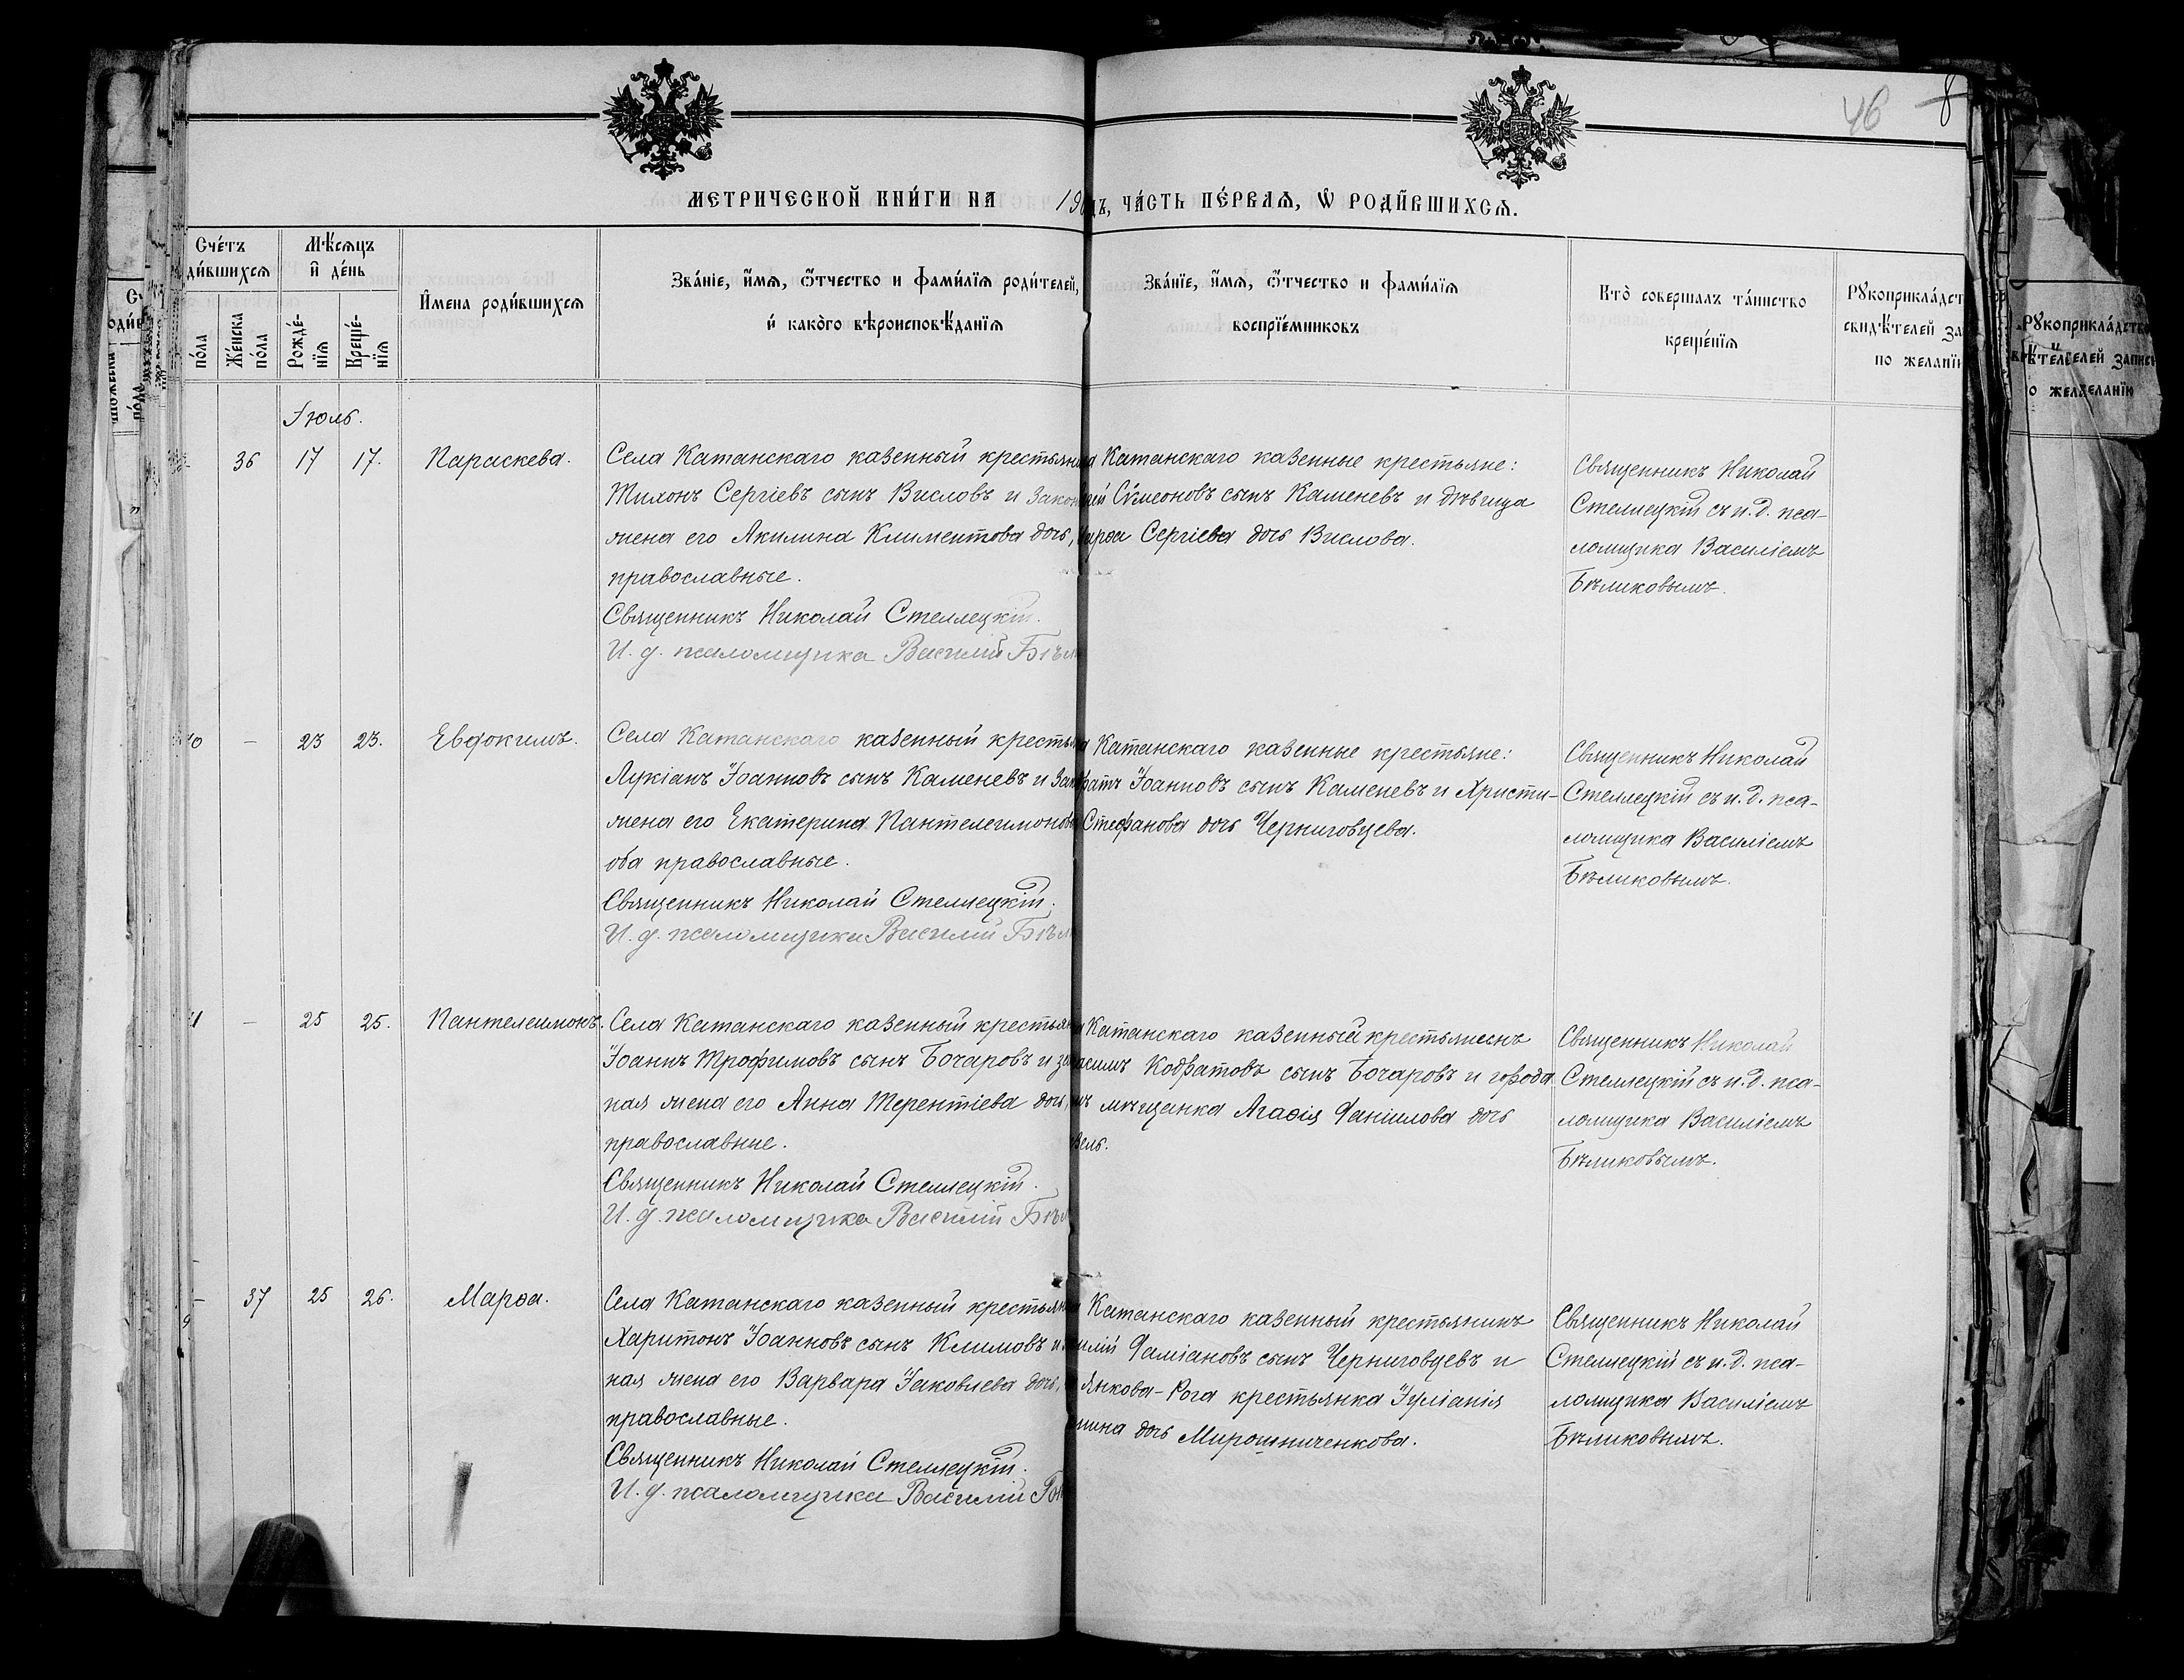 46 8
МЕТРИЧЕСКОЙ КНИ́ГИ НА 190
ДЪ, ЧА́СТЬ ПЕ́РВАЯ, Ѡ РОДИ́ВШИХСЯ.
Сче́тъ
ди́вшихся
по́ла
Же́нска
по́ла
Мѣ́сяцъ
и҆ де́нь
Рожде́-
нїя
Креще́-
нїя
И҆мена роди́вшихся
Зва́нїе, и҆́мя, ѻ҆́тчество и фами́лїя роди́телей,
и҆ како́го вѣроисповѣ́данїя
Зва́нїе, и҆́мя, ѻ҆́тчество и фами́лїя
воспрїе́мниковъ
Кто̀ соверша́лъ та́инство
креще́нїя
Рꙋкоприкла́дст
свидѣ́телей за
по желанїю
Іюль.
36 17 17. Параскева.
Села Катанскаго казенный крестьяни
Тихонъ Сергіевъ сынъ Висловъ и закон
жена его Акилина Климентова дочь,
православные.
Священникъ Николай Стеллецкій.
И. д. псаломщика Василій Бѣл
Катанскаго казенные крестьяне:
Сѵмеоновъ сынъ Каменевъ и дѣвица
Сергіева дочь Вислова.
Священникъ Николай
Стеллецкій съ и. д. пса-
ломщика Василіемъ
Бѣликовымъ.
40 — 23 23. Евдокимъ.
Села Катанскаго казенный крестья
Лукіанъ Іоанновъ сынъ Каменевъ и зак
жена его Екатерина Пантелеимонова
оба православные.
Священникъ Николай Стеллецкій.
И. д. псаломщика Василій Бѣл
Катанскаго казенные крестьяне:
Іоанновъ сынъ Каменевъ и Христи-
Стефанова дочь Черниговцева.
Священникъ Николай
Стеллецкій съ и. д. пса-
ломщика Василіемъ
Бѣликовымъ.
41 — 25 25. Пантелеимонъ.
Села Катанскаго казенный крестьян
Іоаннъ Трофимовъ сынъ Бочаровъ и за
ная жена его Анна Терентіева дочь,
православные.
Священникъ Николай Стеллецкій.
И. д. псаломщика Василій Бѣл
Катанскаго казенный крестьянинъ
Кодратовъ сынъ Бочаровъ и города
мѣщанка Агаѳія Даніилова дочь
Священникъ Николай
Стеллецкій съ и. д. пса-
ломщика Василіемъ
Бѣликовымъ.
— 37 25 26. Марѳа.
Села Катанскаго казенный крестьян
Харитонъ Іоанновъ сынъ Климовъ и
ная жена его Варвара Іаковлева дочь,
православные.
Священникъ Николай Стеллецкій.
И. д. псаломщика Василій
Катанскаго казенный крестьянинъ
Даміановъ сынъ Черниговцевъ и
Янкова-Рога крестьянка Іуліанія
дочь Мирошниченкова.
Священникъ Николай
Стеллецкій съ и. д. пса-
ломщика Василіемъ
Бѣликовымъ.